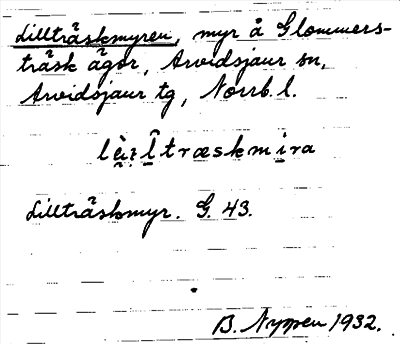 Lillträskmyren, myr å Glommers-
träsk ägor, Arvidsjaur sn,
Arvidsjaur tg, Norrb. l.
Lillträskmyr. G. 43.
B. Nyman 1932.